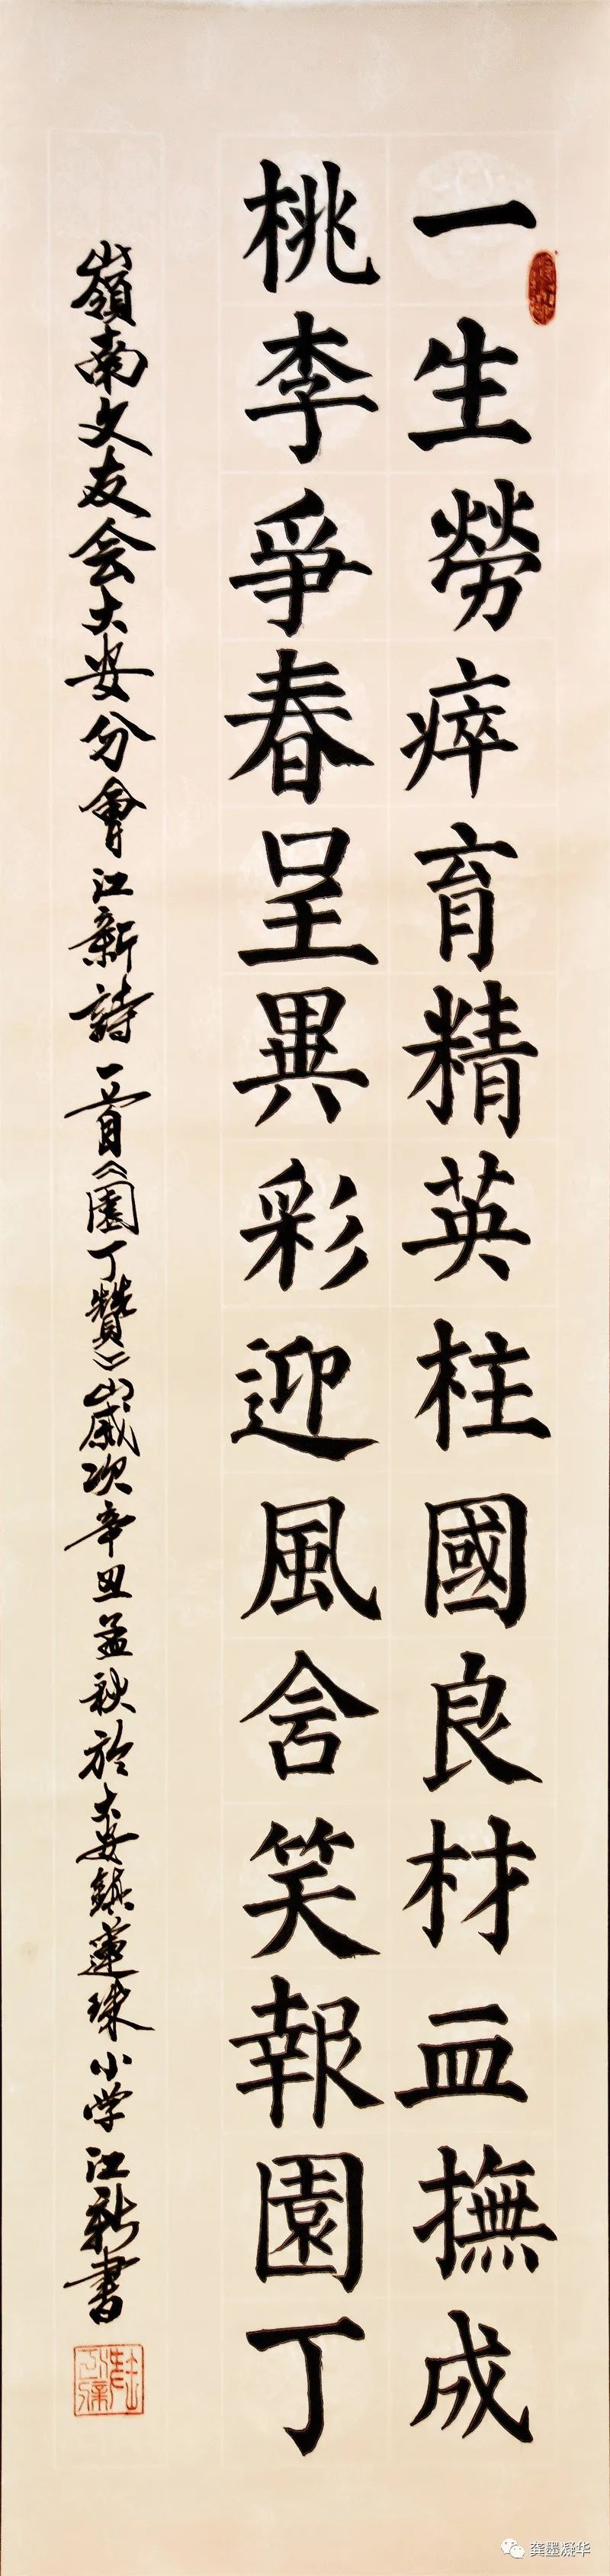 一生勞瘁育精英柱國良材血撫成
桃李爭春呈異彩迎風含笑報園丁
嶺南文友会大安分會江新詩一首《園丁贊》歲次辛丑孟秋於大安鎮蓮珠小学江新書
龚墨凝华